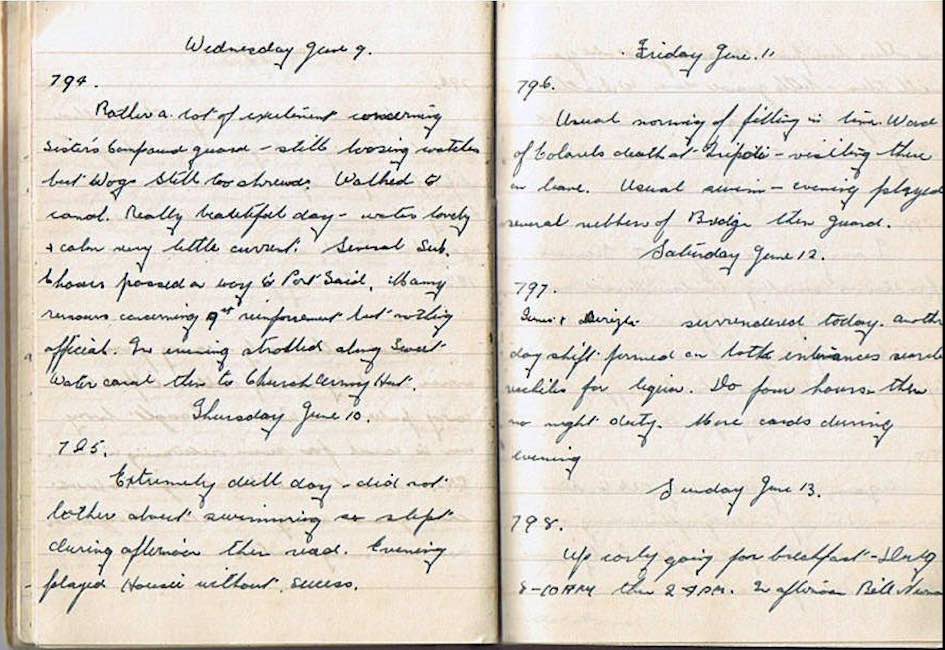 Wednesday June 9.
794.
Rather a lot of excitement concerning
Sisters Compound guard - still loosing watches
but Wogs still too shrewd. Walked to
canal. Really beautiful day - water lovely
+ calm very little current. Several Sub.
Chasers passed on way to Port Said. Many
rumours concerning 9th reinforcement but nothing
official. In evening strolled along Sweet
Water canal then to Church Army Hut.
Thursday June 10.
795.
Extremely dull day - did not
bother about swimming so slept
during afternoon then read. Evening
played Housie without success.
Friday June. 11
796.
Usual morning of filling in time. Word
of Colonels death at Tripoli - visiting there
on leave. Usual swim - evening played
several rubbers of Bridge then guard.
Saturday June 12.
797.
surrendered today. another
day shift formed on both entrances search
vehicles for liquor. Do four hours then
no night duty. More cards during
evening
Sunday June 13.
798.
Up early going for breakfast - Duty
8-10 AM then 2-4 PM. In afternoon Bill